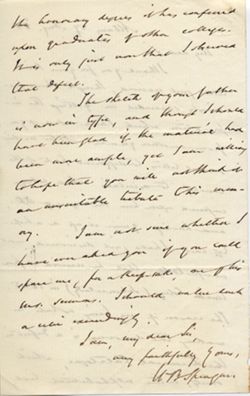 the honorary degrees it has conferred
upon graduates of other colleges.
It is only just now that I discovered
that defect.
The sketch of your father
is now in type, and though I should
have been glad if the material had
been more ample, yet I am willing
to hope that you will not think it
an unsuitable tribute to his mem-
ory. I am not sure whether I
have ever asked you if you could
spare me, for a keepsake, one of his
Mss. sermons. I should value such
a relic exceedingly.
I am, my dear Sir,
very faithfully yours,
W B Sprague.